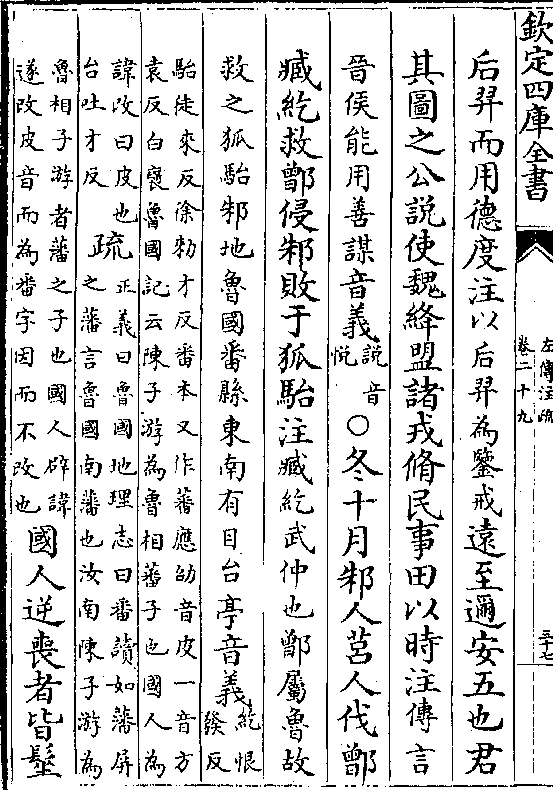 欽定四庫全書
左傳注疏
卷二十九
三十七
后羿而用德度注以后羿為鑒戒遠至邇安五也君
其圖之公說使魏絳盟諸戎脩民事田以時注傳言
晉侯能用善謀音義說音悅○冬十月邾人莒人伐鄫
臧紇救鄫侵邾敗于狐駘注臧紇武仲也鄫屬魯故
救之狐駘邾地魯國番縣東南有目台亭音義紇恨發反
駘徒來反徐勑才反番本又作蕃應劭音皮一音方
袁反白褒魯國記云陳子游為魯相蕃子也國人為
諱改曰皮也
台吐才反
疏
正義曰魯國地理志曰番讀如藩屏
之藩言魯國南藩也汝南陳子游為
魯相子游者藩之子也國人辟諱
遂改皮音而為番字因而不改也
國人逆喪者皆髽